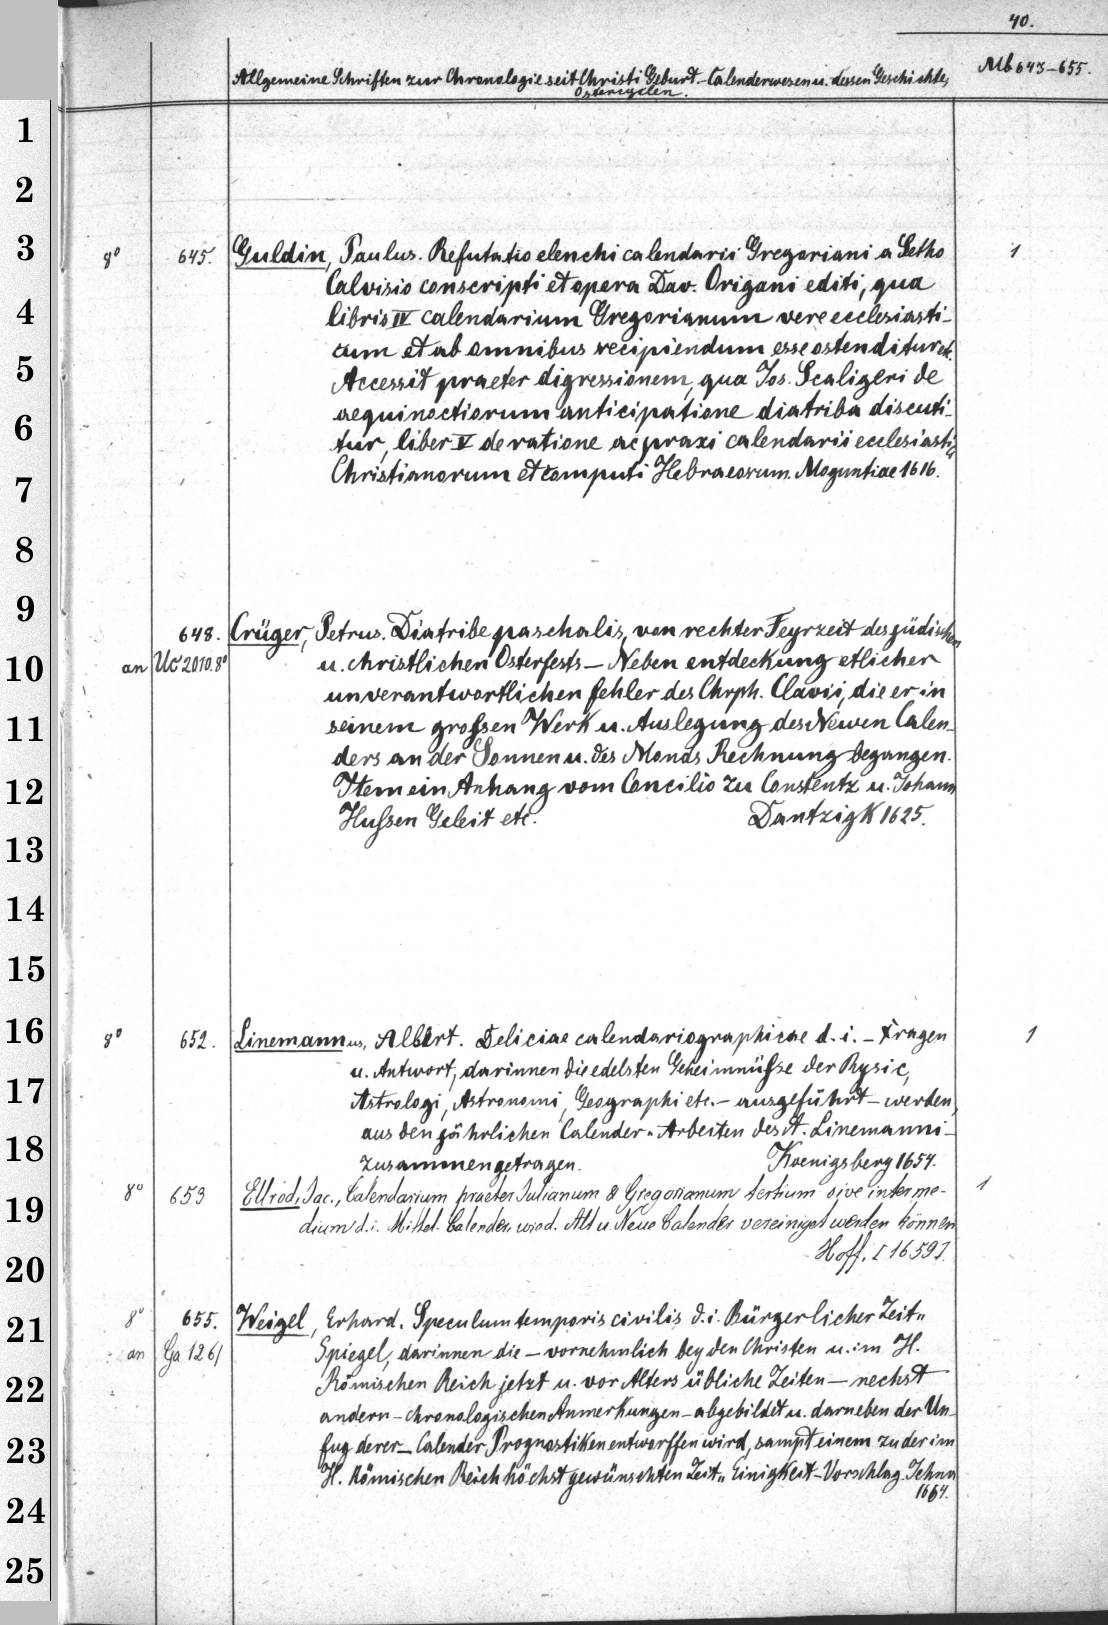 40.
Allgemeine Schriften zur Chronologie seit Christi Geburt. – Calenderwesen u. dessen Geschichte, Mb 643–655.
Ostercyclen.
1
2
3 8° 645. Guldin, Paulus. Refutatio elenchi calendarii Gregoriani a Setho 1
Calvisio conscripti et opera Dav. Origani editi, qua
4 libris IV calendarium Gregorianum vere ecclesiasti-
cum et ab omnibus recipiendum esse ostenditur etc.
5 Accessit praeter digressionem, qua Jos. Scaligeri de
aequinoctiorum anticipatione diatriba discuti-
6 tur, liber V de ratione ac praxi calendarii ecclesiastici
7 Christianorum et computi Hebraeorum. Moguntiae 1616.
8
9 648. Crüger, Petrus. Diatribe paschalis, von rechter Feyrzeit des jüdischen
10 an Uc 2010.8° u. christlichen Osterfests – Neben entdeckung etlicher
unverantwortlichen fehler des Chrph. Clavii, die er in
11 seinem grossen Werk u. Auslegung des Newen Calen-
ders an der Sonnen u. des Monds Rechnung begangen.
12 Item ein Anhang vom Concilio zu Constentz u. Johann
Hussen Geleit etc. Dantzigk 1625.
13
14
15
16 8° 652. Linemannus, Albert. Deliciae calendariographicae d. i. – Fragen 1
u. Antwort, darinnen die edelsten Geheimnüsse der Pysic,
17 Astrologi, Astronomi, Geographi etc. – ausgeführt – werden,
18 aus den jährlichen Calender-Arbeiten des A. Linemanni –
zusammengetragen. Koenigsberg 1654.
19 8° 653 Ellrod, Jac., Calendarium praeter Julianum & Gregorianum tertium sive interme- 1
dium d. i. Mittel Calender, wie d. Alt u. Neue Calender vereiniget werden können
20 Hoff. [1659].
21 8° 655. Weigel, Erhard. Speculum temporis civilis d. i. Bürgerlicher Zeit„
an Ga 126/ Spiegel, darinnen die – vornehmlich bey den Christen u. im H.
22 Römischen Reich jetzt u. vor Alters übliche Zeiten – nechst
andern – chronologischen Anmerkungen – abgebildet u. darneben der Un-
23 fug derer – Calender Prognostiken entworffen wird, sampt einem zu der im
H. Römischen Reich höchst gewünschten Zeit„ Einigkeit – Vorschlag. Jehna
24 1664.
25